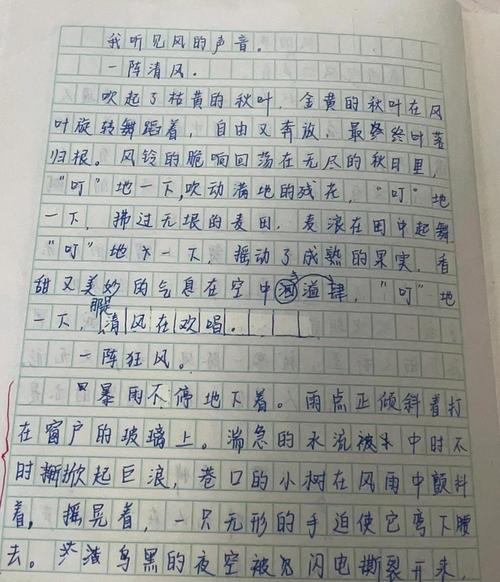 我听见风的声音。
一阵清风.
吹起了枯黄的秋叶，金黄的秋叶在风
叶旋转舞蹈着，自由又奔放，最终终叶落
归根。风铃的脆响回荡在无尽的秋日里，
“叮”地一下，吹动满地的残花，“叮”地
一下，拂过无垠的麦田，麦浪在田中起舞
“叮”地一下，摇动了成熟的果实，香
甜又美妙的气息在空中溢肆，“叮”地
一下，那是清风在欢唱。
一阵狂风。
暴雨不停地下着。雨点正倾斜着打
在窗户的玻璃上。湍急的水流被中时不
时掀起巨浪，巷口的小树在风雨中颤抖
着，摇晃着，一只无形的手迫使它弯下腰
去。乌黑的夜空被闪电撕裂开来，